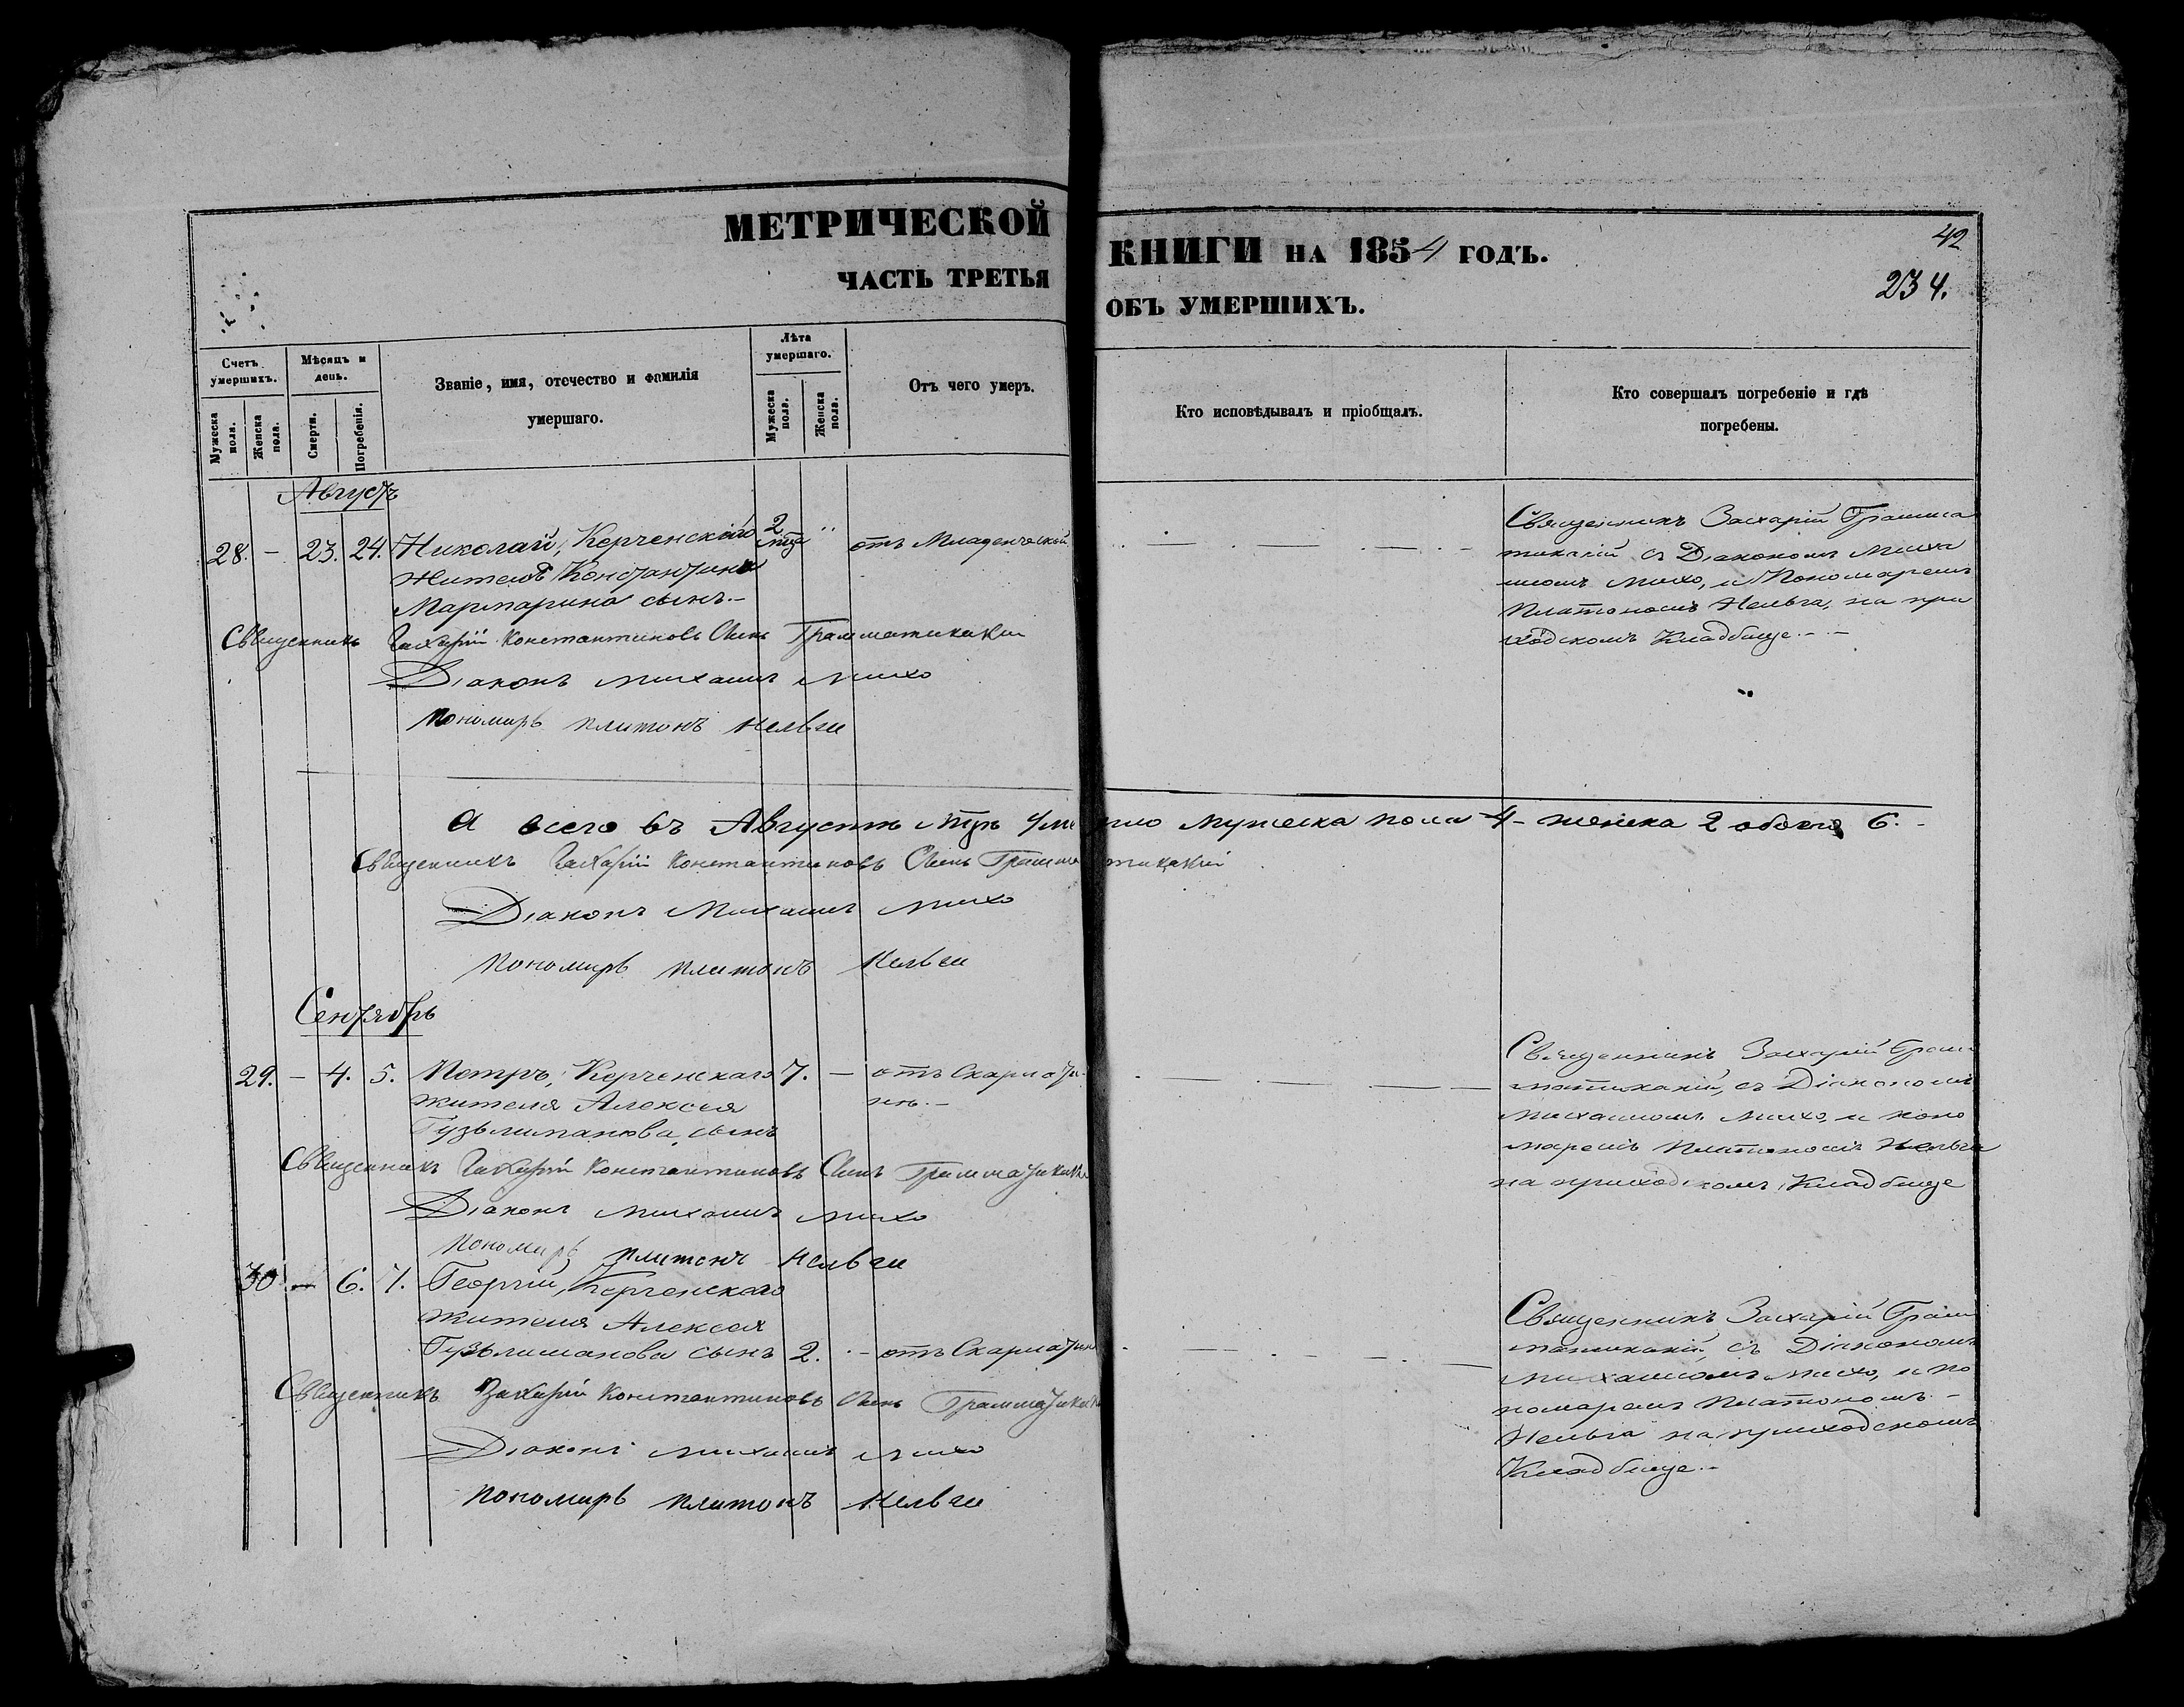 МЕТРИЧЕСКОЙ КНИГИ НА 1854 ГОДЪ.
42
ЧАСТЬ ТРЕТЬЯ ОБЪ УМЕРШИХЪ.
234.
Счетъ умершихъ.
Мужеска пола.
Женска пола.
Мѣсяцъ и день.
Смерти.
Погребенія.
Званіе, имя, отечество и фамилія
умершаго.
Лѣта умершаго.
Мужеска пола.
Женска пола.
Отъ чего умеръ.
Кто исповѣдывалъ и пріобщалъ.
Кто совершалъ погребеніе и гдѣ
погребены.
Августъ
28. – 23. 24. Николай, Керченскаго 2 отъ Младенческой
жителя Константина
Мармарина сынъ.–
Священникъ Захарій Грамма
тикакій съ Діакономъ Миха
иломъ Михо, и Пономаремъ
Платономъ Нельга, на при
ходскомъ Кладбище.–
Священникъ Захарій Константиновъ Сынъ Грамматикаки
Діаконъ Михаилъ Михо
Пономарь Платонъ Нельги
А всего въ Августѣ мцѣ умерло мужеска пола 4 – женска 2 обоего 6.–
Священникъ Захарій Константиновъ Сынъ Грамматикакій
Діаконъ Михаилъ Михо
Пономарь Платонъ Нельги
Сентябрь
29. – 4. 5. Петръ, Керченскаго 7. – отъ Скарлати-
жителя Алексея ны.–
Гузьлиманова сынъ
Священникъ Захарій Грам
матикакій, съ Діакономъ
Михаиломъ Михо, и поно
маремъ Платономъ Нельга
на приходскомъ Кладбище
Священникъ Захарій Константиновъ Сынъ Грамматикаки
Діаконъ Михаилъ Михо
Пономарь Платонъ Нельги
30. – 6. 7. Георгій, Керченскаго
жителя Алексея
Гузьлиманова сынъ 2. – отъ Скарлатин
Священникъ Захарій Грам
матикакій, съ Діакономъ
Михаиломъ Михо, и по
номаремъ Платономъ –
Нельга на приходскомъ
Кладбище.–
Священникъ Захарій Константиновъ Сынъ Грамматикаки
Діаконъ Михаилъ Михо
Пономарь Платонъ Нельги